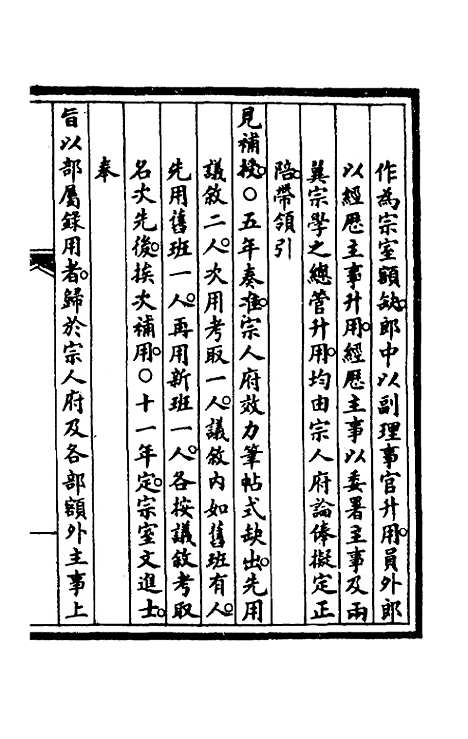 作為宗室額缺。郎中以副理事官升用。員外郎
以經歷主事升用。經歷主事以委署主事及兩
翼宗學之總管升用。均由宗人府論俸擬定正
陪。帶領引
見補授。〇五年奏准。宗人府效力筆帖式缺出。先用
議敘二人。次用考取一人。議敘內如舊班有人。
先用舊班一人。再用新班一人。各按議敘考取
名次先後。挨次補用。〇十一年定。宗室文進士。
奉
旨以部屬錄用者。歸於宗人府及各部額外主事上